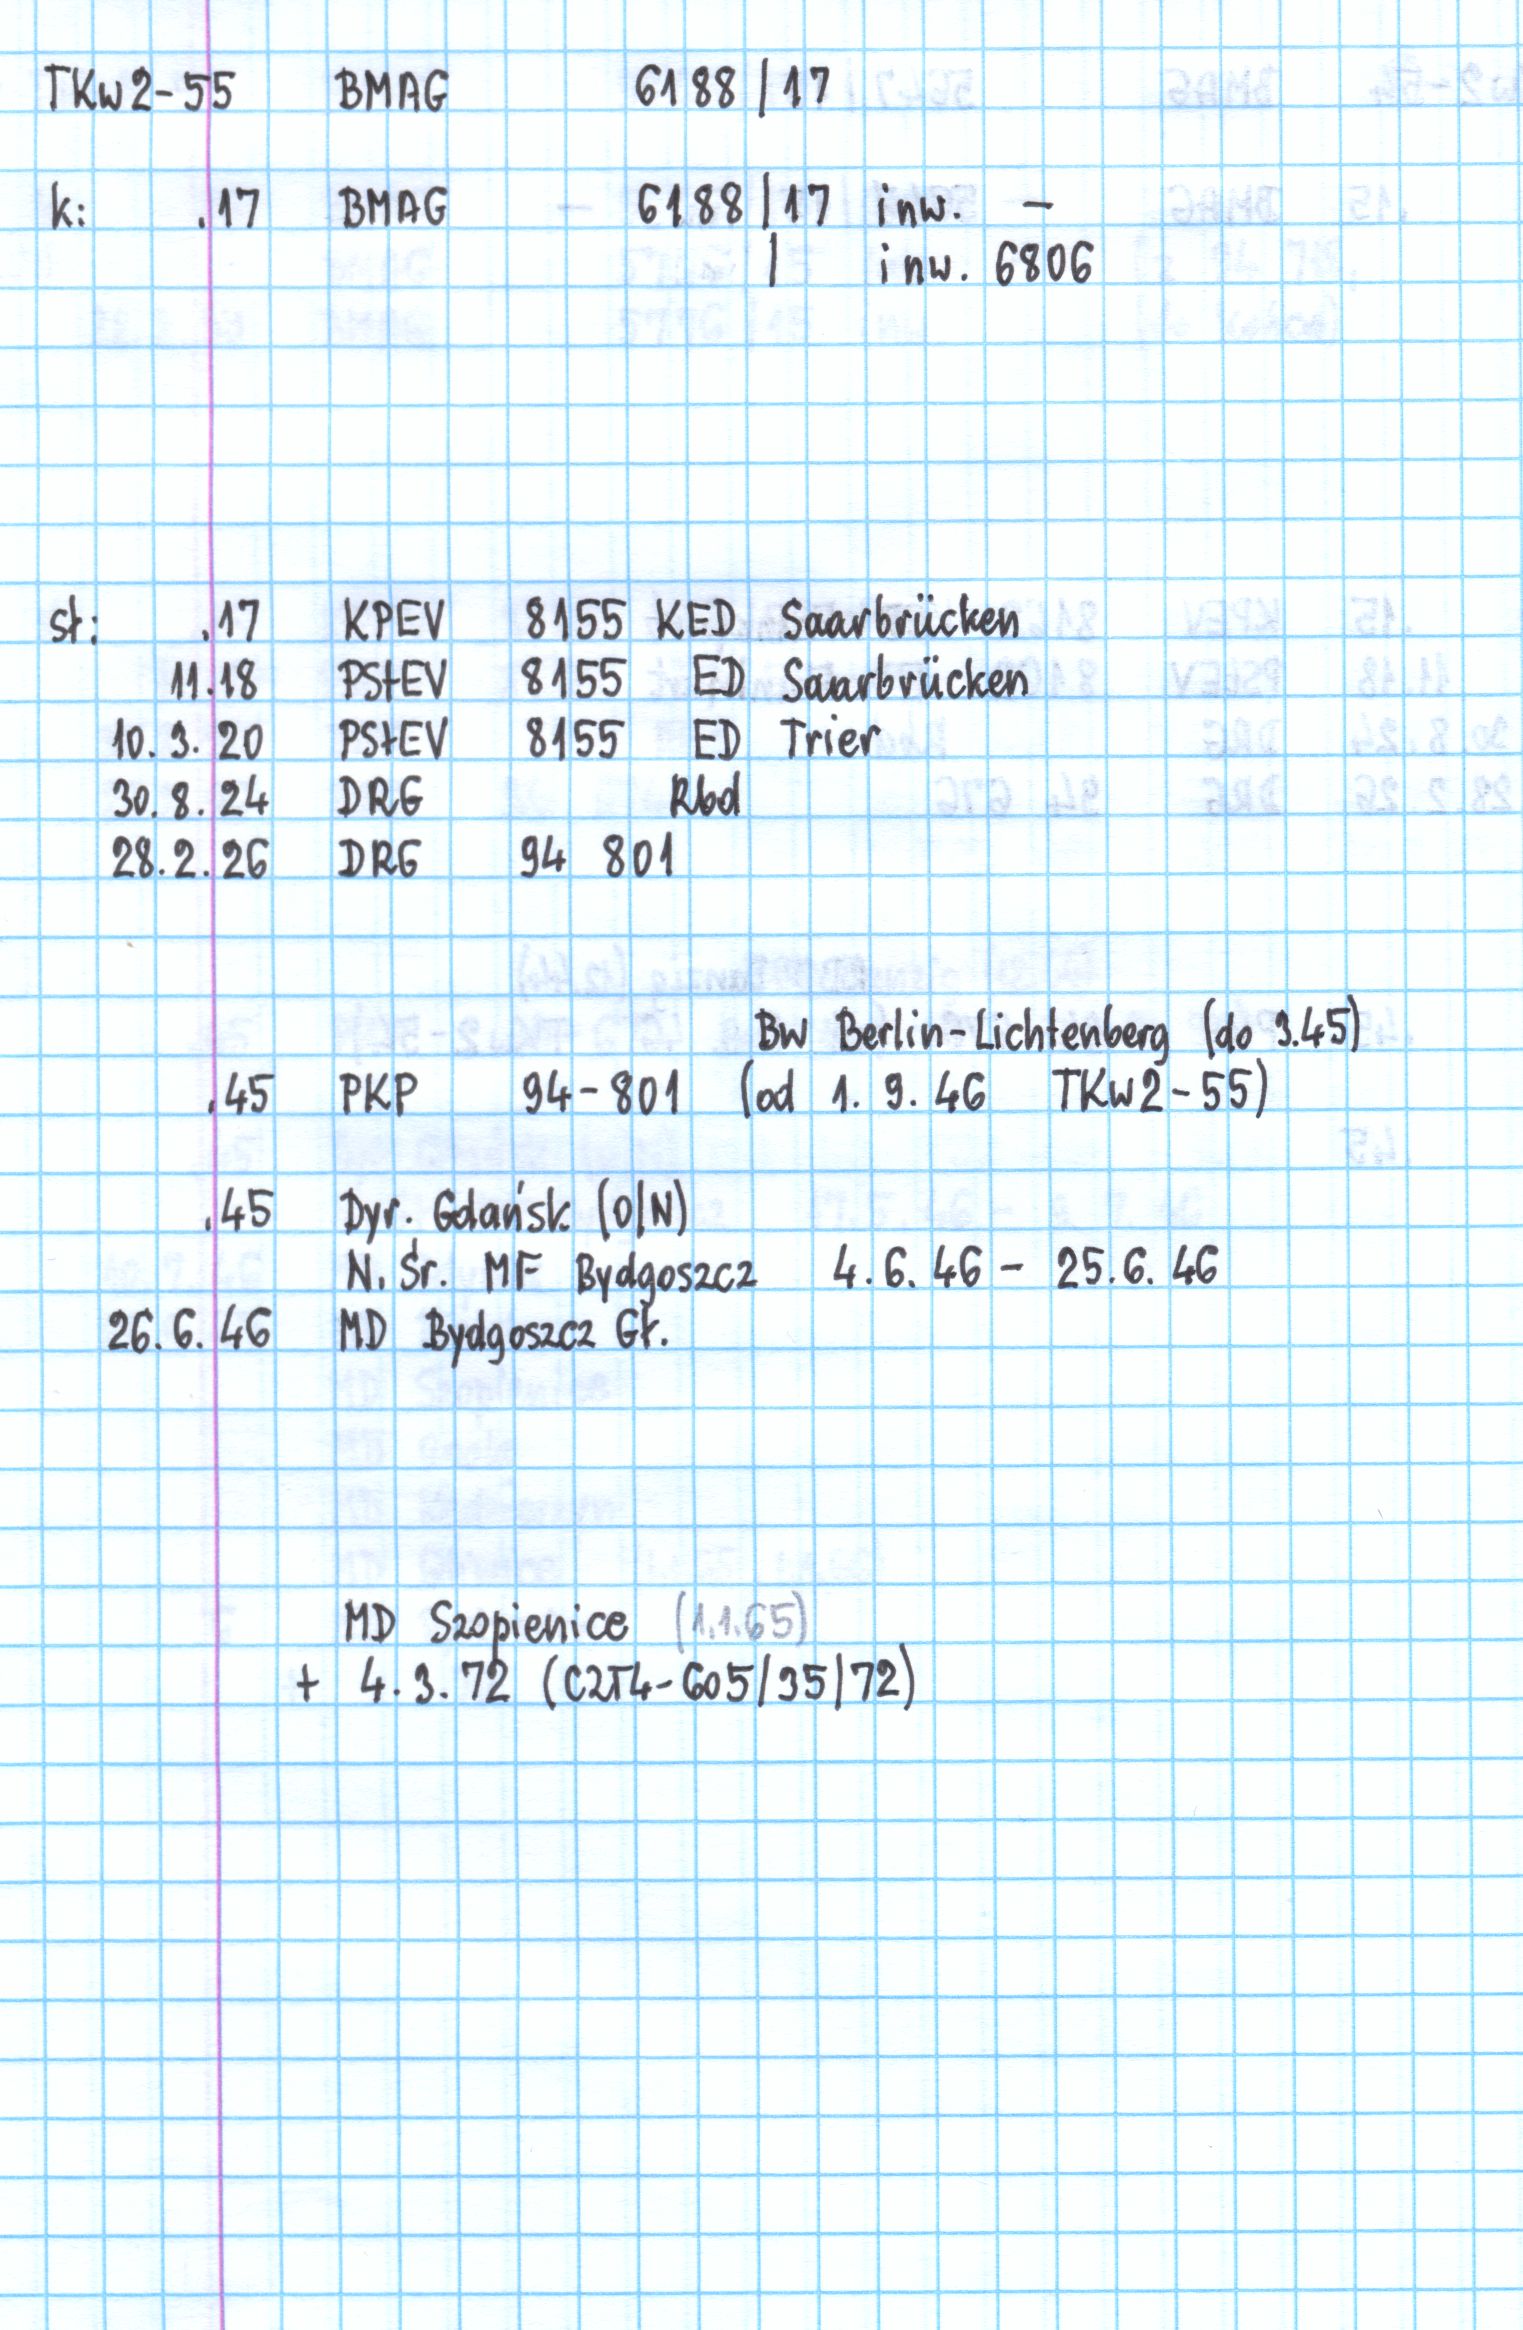 TKw2-55 BMAG 6188/17
k: .17 BMAG - 6188/17 inw. -
/ inw. 6806
st: .17 KPEV 8155 KED Saarbrücken
11.18 PStEV 8155 ED Saarbrücken
10.3.20 PStEV 8155 ED Trier
30.8.24 DRG Rbd
28.2.26 DRG 94 801
Bw Berlin-Lichtenberg (do 3.45)
.45 PKP 94-801 (od 1.9.46 TKw2-55)
.45 Dyr. Gdańsk (O/N)
N. Śr. MF Bydgoszcz 4.6.46 - 25.6.46
26.6.46 MD Bydgoszcz Gł.
MD Szopienice (1.1.65)
+ 4.3.72 (C2T4-605/35/72)